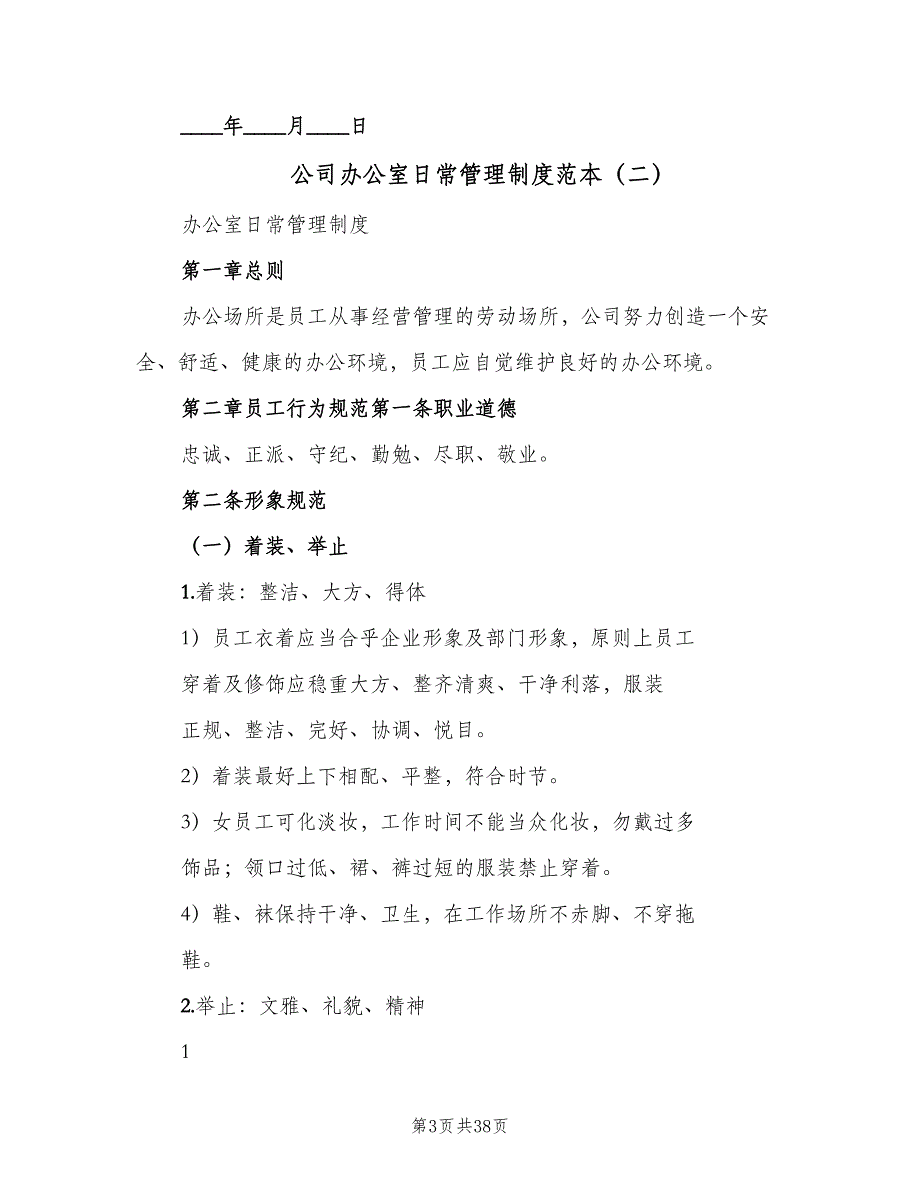 ____年____月____日
公司办公室日常管理制度范本（二）
办公室日常管理制度
第一章总则
办公场所是员工从事经营管理的劳动场所，公司努力创造一个安
全、舒适、健康的办公环境，员工应自觉维护良好的办公环境。
第二章员工行为规范第一条职业道德
忠诚、正派、守纪、勤勉、尽职、敬业。
第二条形象规范
（一）着装、举止
1.着装：整洁、大方、得体
1）员工衣着应当合乎企业形象及部门形象，原则上员工
穿着及修饰应稳重大方、整齐清爽、干净利落，服装
正规、整洁、完好、协调、悦目。
2）着装最好上下相配、平整，符合时节。
3）女员工可化淡妆，工作时间不能当众化妆，勿戴过多
饰品；领口过低、裙、裤过短的服装禁止穿着。
4）鞋、袜保持干净、卫生，在工作场所不赤脚、不穿拖
鞋。
2.举止：文雅、礼貌、精神
1
第3页共38页